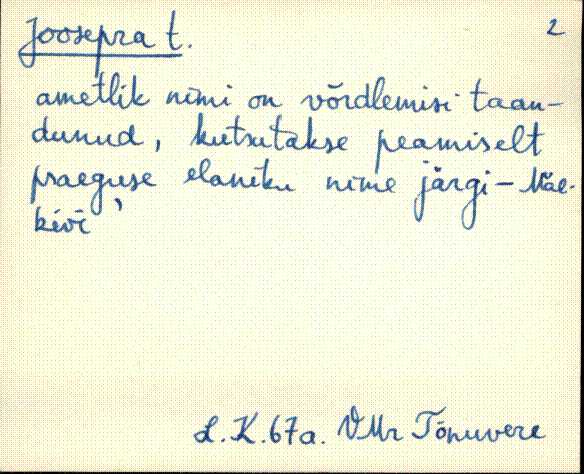 Joosepra t. 2
ametlik nimi on võrdlemisi taan-
dunud, kutsutakse peamiselt
praeguse elaniku nime järgi – Mäe-
kivi
L.K.67a. VMr Tõnuvere